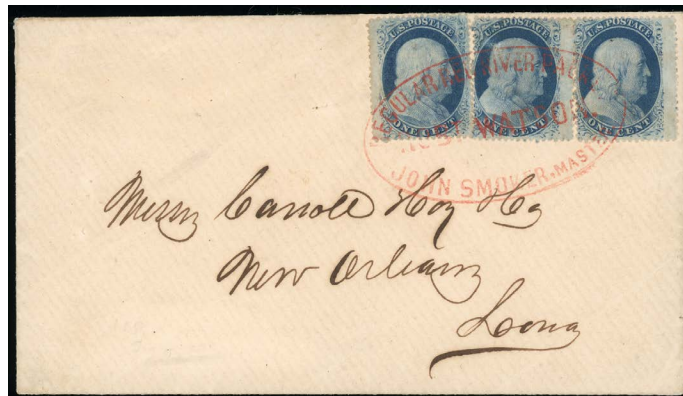 U.S. POSTAGE U.S. POSTAGE U.S. POSTAGE
ONE CENT ONE CENT ONE CENT
REGULAR RED RIVER PACK
WATSON
JOHN SMOKER, MASTER
Messrs Carroll Hoy & Co
New Orleans
Louna